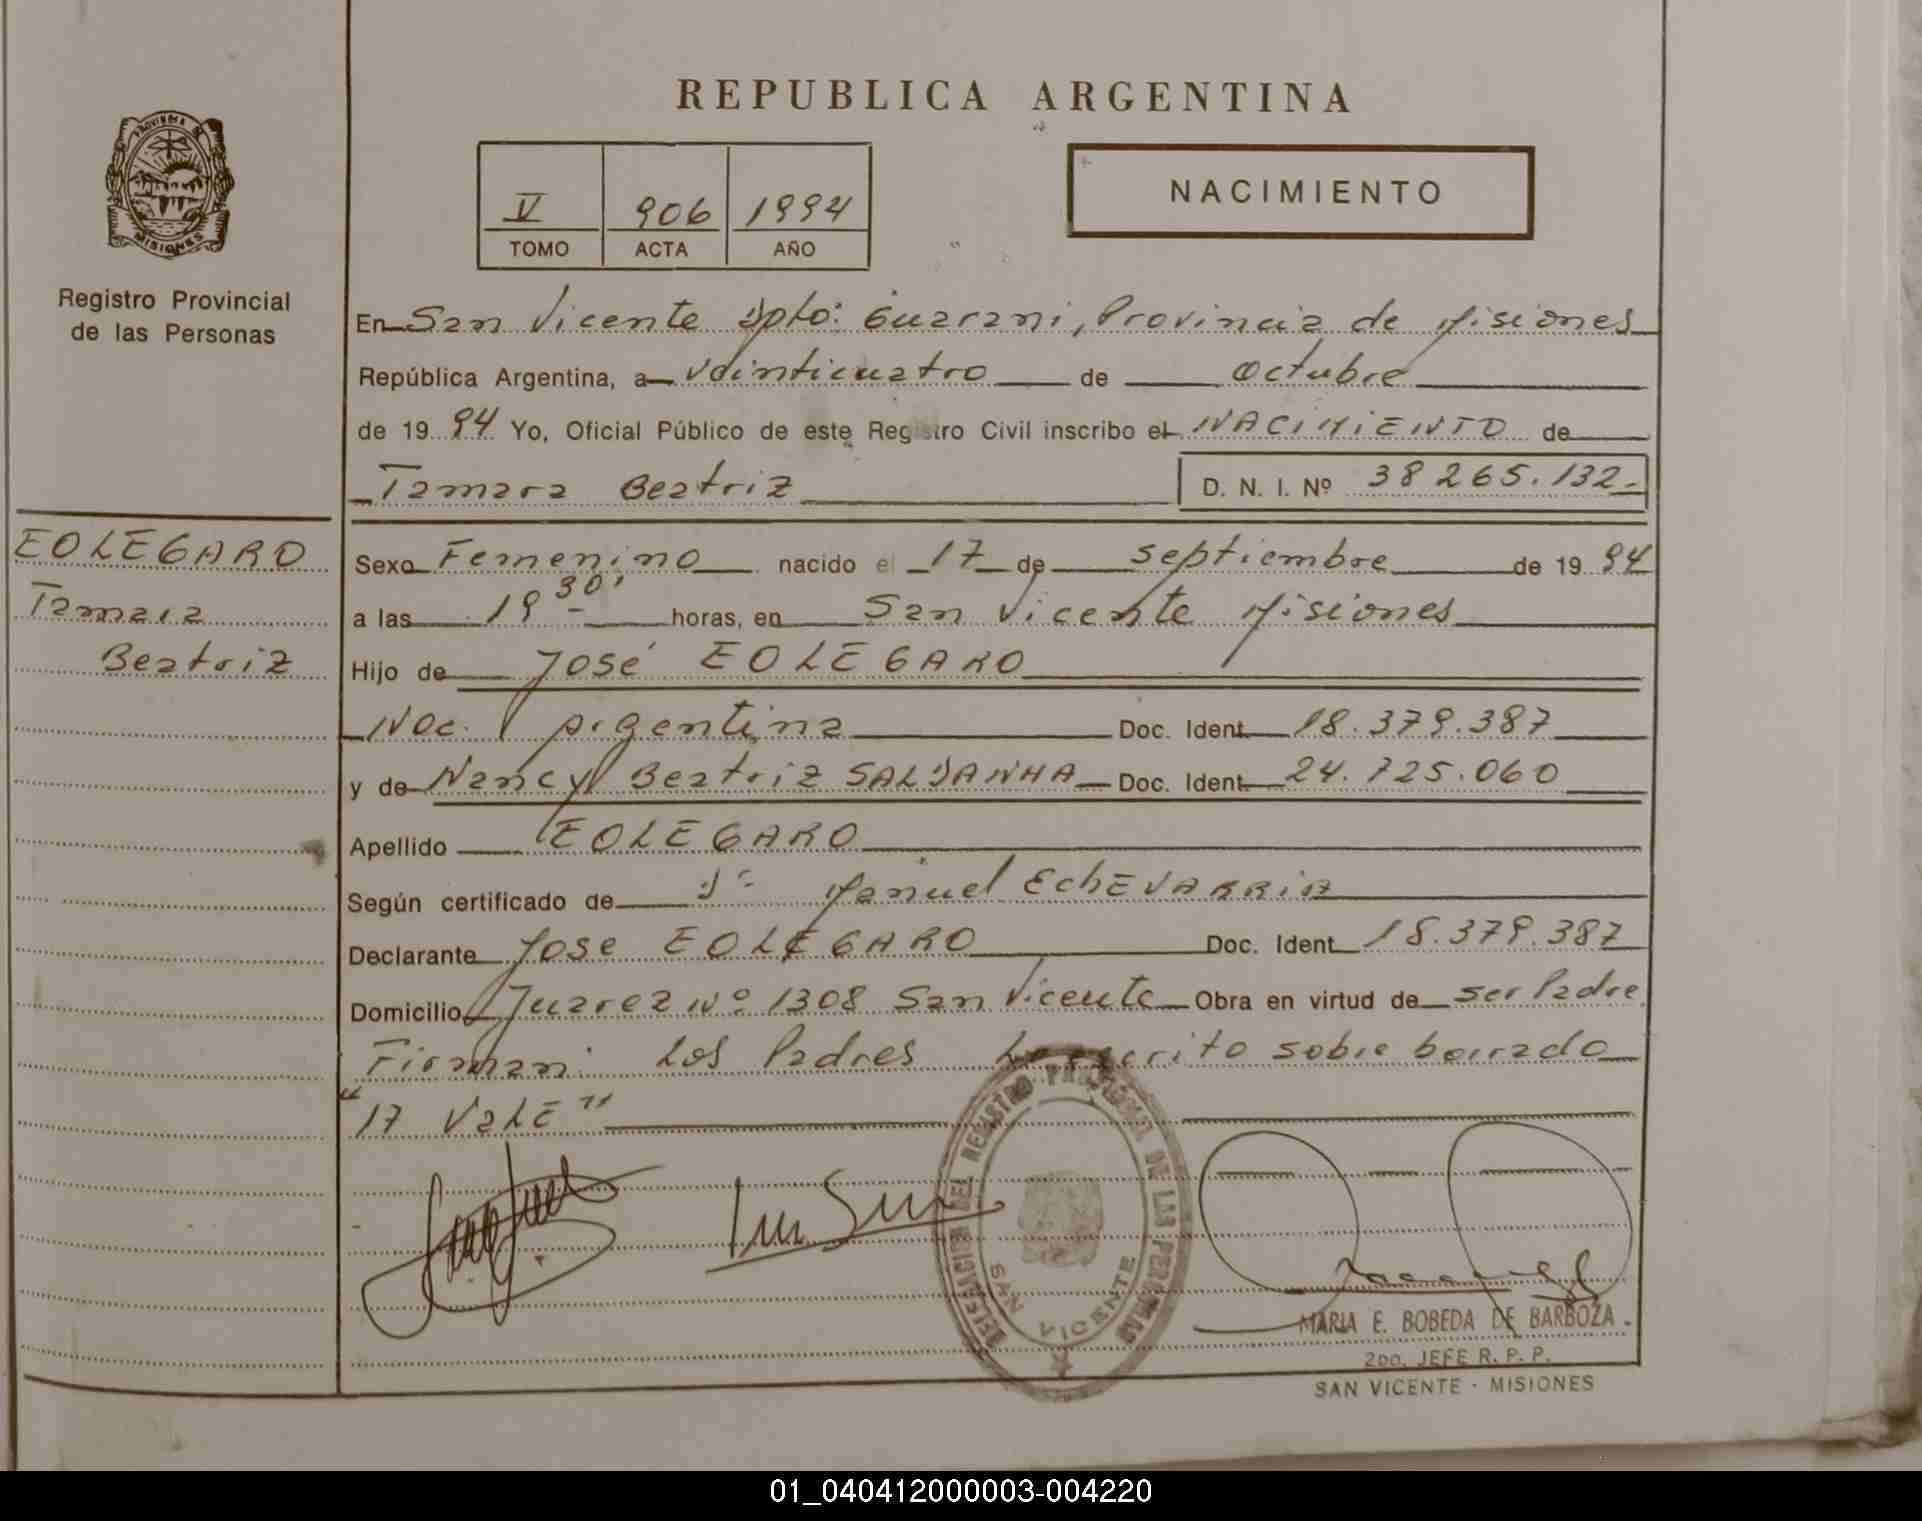 REPUBLICA ARGENTINA
PROVINCIA DE
MISIONES
Registro Provincial
de las Personas
V 906 1994
TOMO ACTA AÑO
NACIMIENTO
En San Vicente Dpto: Guarani, Provincia de Misiones
República Argentina, a Veinticuatro de Octubre
de 1994 Yo, Oficial Público de este Registro Civil inscribo el NACIMIENTO de
Tamara Beatriz D. N. I. Nº 38265.132.-
EOLEGARO
Tamara
Beatriz
Sexo Femenino nacido el 17 de Septiembre de 1994
a las 19 30' horas, en San Vicente Misiones
Hijo de José EOLEGARO
Nac. Argentina Doc. Ident 18.379.387
y de Nancy Beatriz SALDANHA Doc. Ident 24.725.060
Apellido EOLEGARO
Según certificado de Dr Manuel EchEVARRIA
Declarante Jose EOLEGARO Doc. Ident 18.379.387
Domicilio Juarez Nº 1308 San Vicente Obra en virtud de ser Padre
Firman: Los Padres Lo escrito sobre borrado
"17 VaLE"
DELEGACION DEL REGISTRO PROVINCIAL DE LAS PERSONAS
SAN VICENTE
MARIA E. BOBEDA DE BARBOZA
2DO. JEFE R. P. P.
SAN VICENTE - MISIONES
01_040412000003-004220